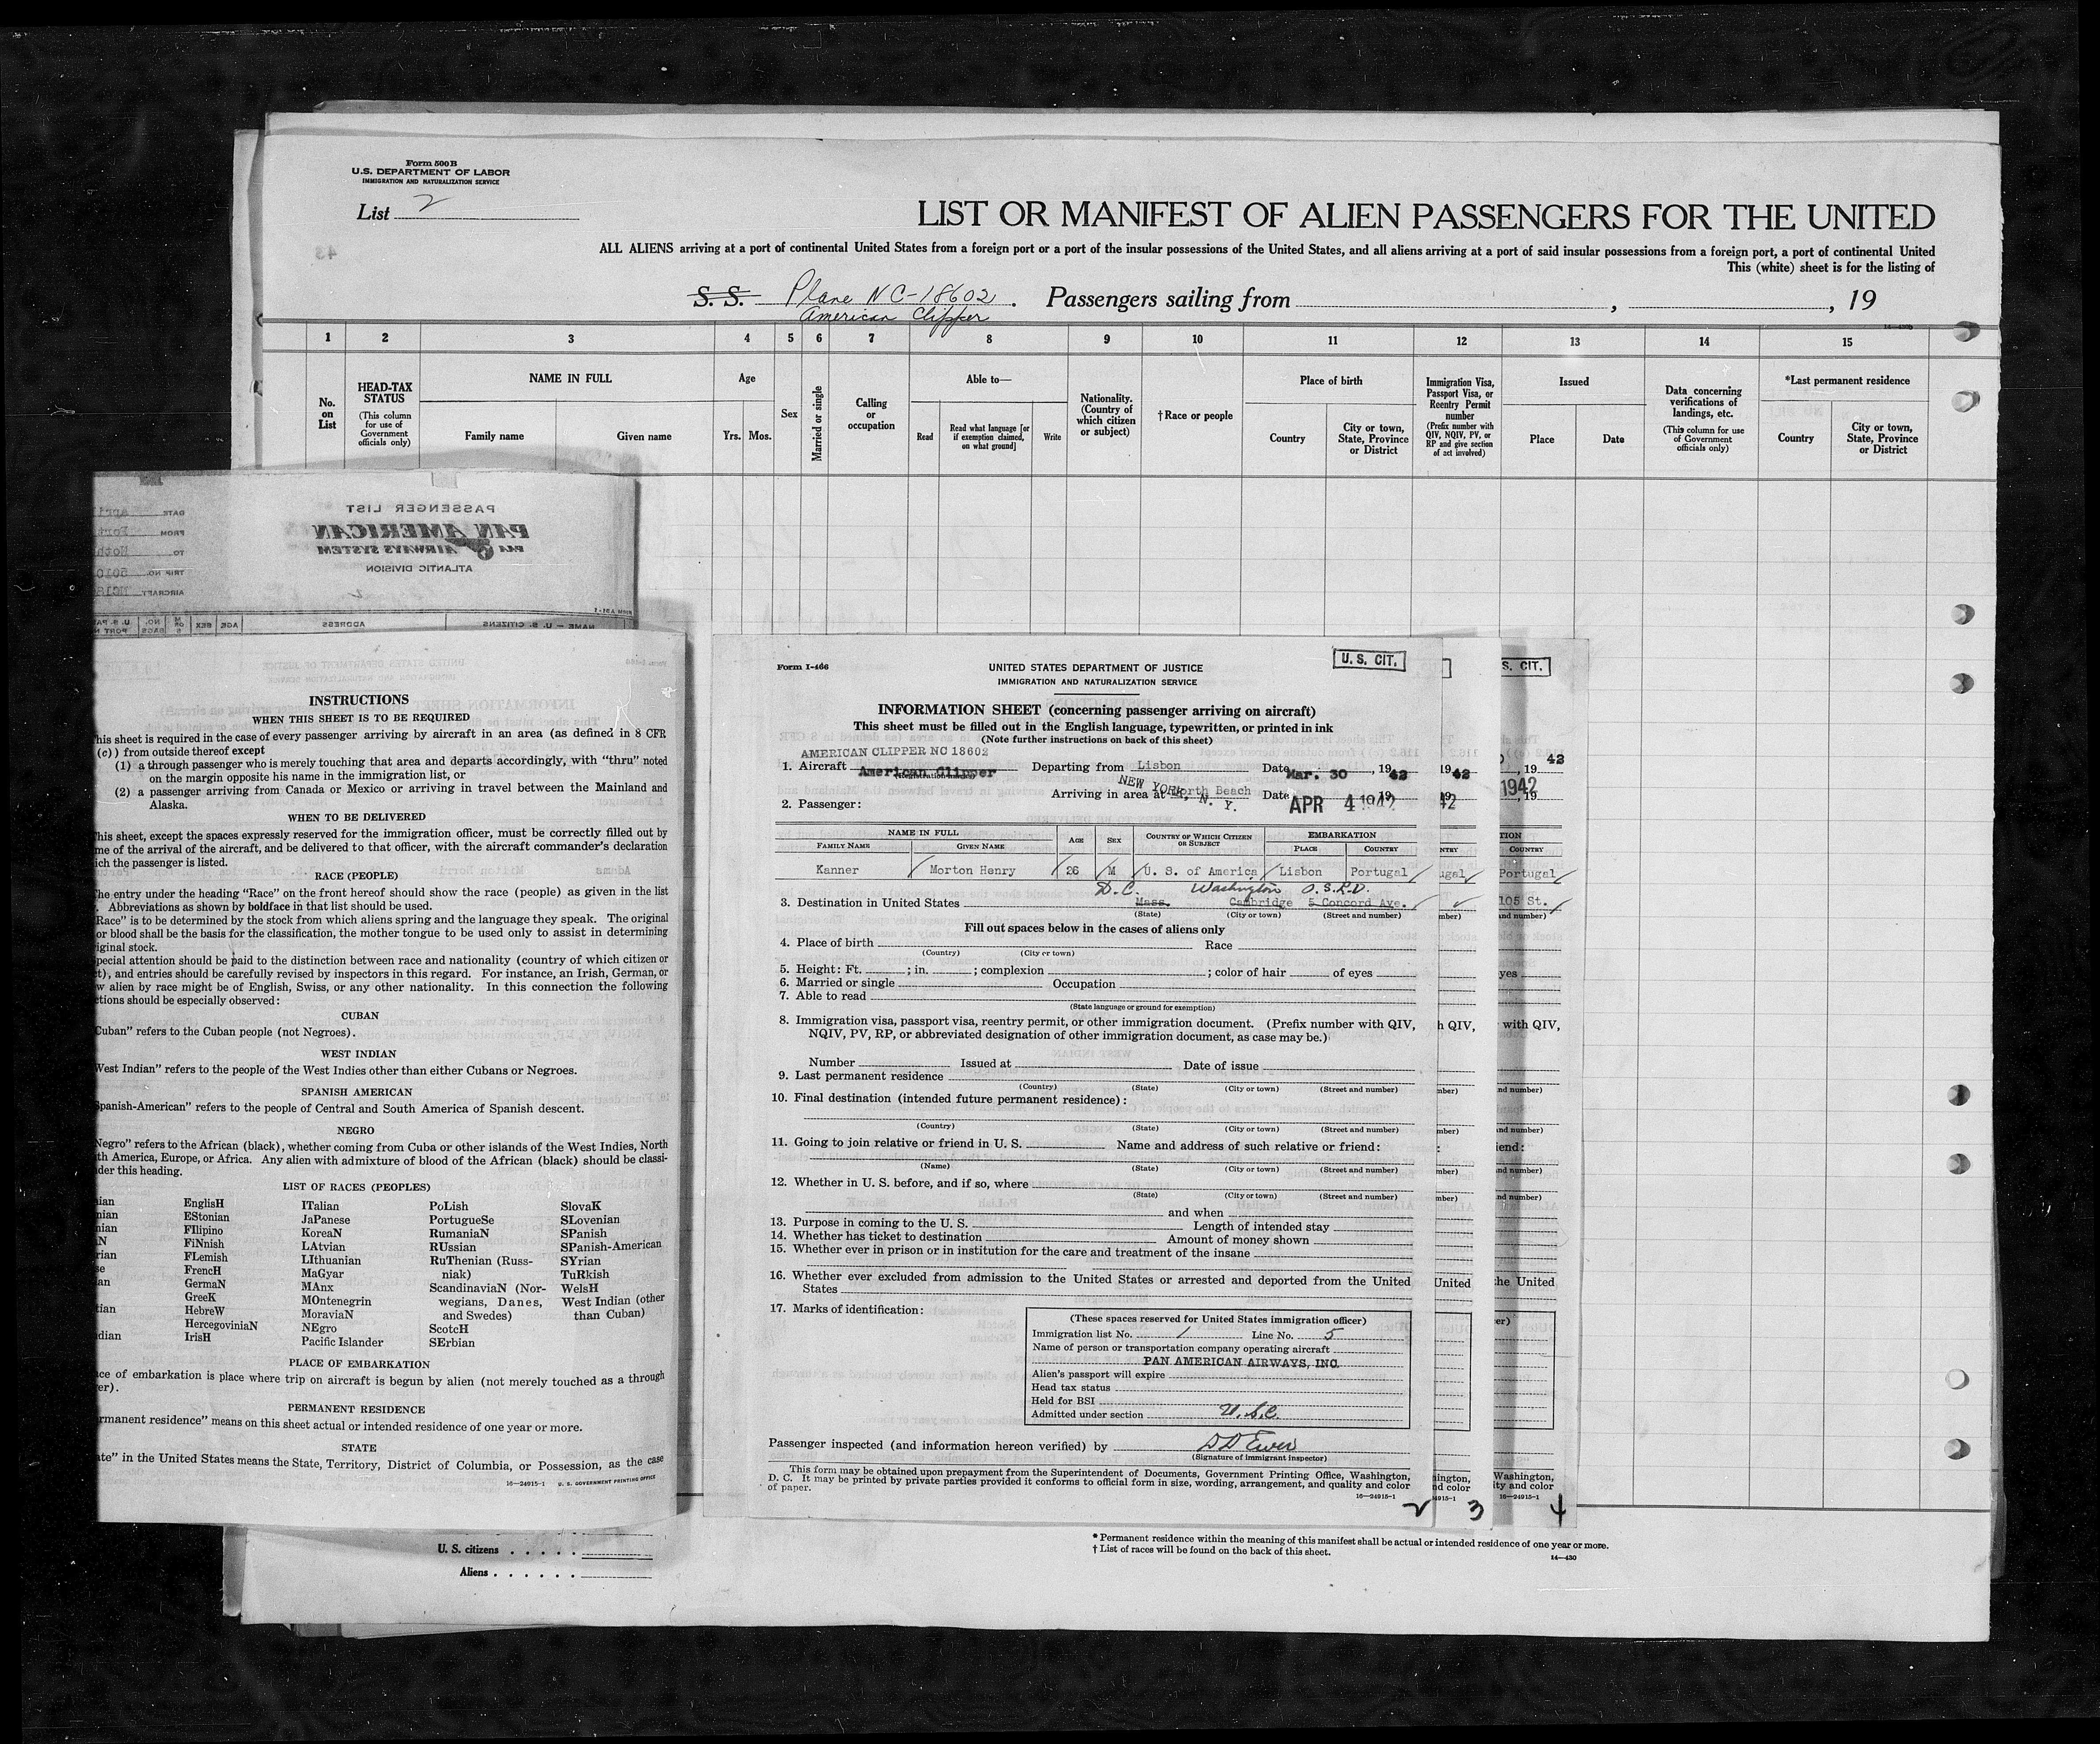 Form 500 B
U.S. DEPARTMENT OF LABOR
IMMIGRATION AND NATURALIZATION SERVICE
List 2
LIST OR MANIFEST OF ALIEN PASSENGERS FOR THE UNITED
ALL ALIENS arriving at a port of continental United States from a foreign port or a port of the insular possessions of the United States, and all aliens arriving at a port of said insular possessions from a foreign port, a port of continental United
This (white) sheet is for the listing of
S. S. Plane NC-18602. Passengers sailing from , , 19
American Clipper
1 2 3 4 5 6 7 8 9 10 11 12 13 14 15
No. on List
HEAD-TAX STATUS
(This column for use of Government officials only)
NAME IN FULL
Family name Given name
Age
Yrs. Mos.
Sex
Married or single
Calling or occupation
Able to—
Read
Read what language [or if exemption claimed, on what ground]
Write
Nationality. (Country of which citizen or subject)
† Race or people
Place of birth
Country
City or town, State, Province or District
Immigration Visa, Passport Visa, or Reentry Permit number
(Prefix number with QIV, NQIV, PV, or RP and give section of act involved)
Issued
Place Date
Data concerning verifications of landings, etc.
(This column for use of Government officials only)
*Last permanent residence
Country
City or town, State, Province or District
PASSENGER LIST
PAN AMERICAN
PAA AIRWAYS SYSTEM
ATLANTIC DIVISION
DATE
FROM
TO
TRIP NO.
AIRCRAFT
NAME — U. S. CITIZENS ADDRESS AGE SEX
INSTRUCTIONS
WHEN THIS SHEET IS TO BE REQUIRED
his sheet is required in the case of every passenger arriving by aircraft in an area (as defined in 8 CFR
(c)) from outside thereof except
(1) a through passenger who is merely touching that area and departs accordingly, with "thru" noted
on the margin opposite his name in the immigration list, or
(2) a passenger arriving from Canada or Mexico or arriving in travel between the Mainland and
Alaska.
WHEN TO BE DELIVERED
his sheet, except the spaces expressly reserved for the immigration officer, must be correctly filled out by
me of the arrival of the aircraft, and be delivered to that officer, with the aircraft commander's declaration
ich the passenger is listed.
RACE (PEOPLE)
he entry under the heading "Race" on the front hereof should show the race (people) as given in the list
. Abbreviations as shown by boldface in that list should be used.
Race" is to be determined by the stock from which aliens spring and the language they speak. The original
or blood shall be the basis for the classification, the mother tongue to be used only to assist in determining
iginal stock.
pecial attention should be paid to the distinction between race and nationality (country of which citizen or
t), and entries should be carefully revised by inspectors in this regard. For instance, an Irish, German, or
w alien by race might be of English, Swiss, or any other nationality. In this connection the following
ctions should be especially observed:
CUBAN
Cuban" refers to the Cuban people (not Negroes).
WEST INDIAN
West Indian" refers to the people of the West Indies other than either Cubans or Negroes.
SPANISH AMERICAN
panish-American" refers to the people of Central and South America of Spanish descent.
NEGRO
Negro" refers to the African (black), whether coming from Cuba or other islands of the West Indies, North
th America, Europe, or Africa. Any alien with admixture of blood of the African (black) should be classi-
der this heading.
LIST OF RACES (PEOPLES)
ian EnglisH ITalian PoLish SlovaK
nian EStonian JaPanese PortugueSe SLovenian
nian FIlipino KoreaN RumaniaN SPanish
N FiNnish LAtvian RUssian SPanish-American
rian FLemish LIthuanian RuThenian (Russ- SYrian
se FrencH MaGyar niak) TuRkish
an GermaN MAnx ScandinaviaN (Nor- WelsH
GreeK MOntenegrin wegians, Danes, West Indian (other
tian HebreW MoraviaN and Swedes) than Cuban)
HercegoviniaN NEgro ScotcH
dian IrisH Pacific Islander SErbian
PLACE OF EMBARKATION
ce of embarkation is place where trip on aircraft is begun by alien (not merely touched as a through
er).
PERMANENT RESIDENCE
rmanent residence" means on this sheet actual or intended residence of one year or more.
STATE
ate" in the United States means the State, Territory, District of Columbia, or Possession, as the case
16—24915-1 U. S. GOVERNMENT PRINTING OFFICE
U. S. citizens . . . . .
Aliens . . . . . .
Form I-466
UNITED STATES DEPARTMENT OF JUSTICE
IMMIGRATION AND NATURALIZATION SERVICE
U. S. CIT.
INFORMATION SHEET (concerning passenger arriving on aircraft)
This sheet must be filled out in the English language, typewritten, or printed in ink
(Note further instructions on back of this sheet)
AMERICAN CLIPPER NC 18602
1. Aircraft American Clipper Departing from Lisbon Date Mar. 30, 1942
Arriving in area at North Beach Date APR 4 1942
NEW YORK, N. Y.
2. Passenger:
NAME IN FULL AGE SEX COUNTRY OF WHICH CITIZEN OR SUBJECT EMBARKATION
FAMILY NAME GIVEN NAME PLACE COUNTRY
Kanner Morton Henry 26 M U. S. of America Lisbon Portugal
D.C. Washington O.S.R.D.
3. Destination in United States Mass. Cambridge 5 Concord Ave.
(State) (City or town) (Street and number)
Fill out spaces below in the cases of aliens only
4. Place of birth Race
(Country) (City or town)
5. Height: Ft. ; in. ; complexion ; color of hair of eyes
6. Married or single Occupation
7. Able to read
(State language or ground for exemption)
8. Immigration visa, passport visa, reentry permit, or other immigration document. (Prefix number with QIV,
NQIV, PV, RP, or abbreviated designation of other immigration document, as case may be.)
Number Issued at Date of issue
9. Last permanent residence
(Country) (State) (City or town) (Street and number)
10. Final destination (intended future permanent residence):
(Country) (State) (City or town) (Street and number)
11. Going to join relative or friend in U. S. Name and address of such relative or friend:
(Name) (State) (City or town) (Street and number)
12. Whether in U. S. before, and if so, where
(State) (City or town) (Street and number)
and when
13. Purpose in coming to the U. S. Length of intended stay
14. Whether has ticket to destination Amount of money shown
15. Whether ever in prison or in institution for the care and treatment of the insane
16. Whether ever excluded from admission to the United States or arrested and deported from the United
States
17. Marks of identification:
(These spaces reserved for United States immigration officer)
Immigration list No. 1 Line No. 5
Name of person or transportation company operating aircraft
PAN AMERICAN AIRWAYS, INC.
Alien's passport will expire
Head tax status
Held for BSI
Admitted under section U.S.C.
Passenger inspected (and information hereon verified) by DD Ewer
(Signature of immigrant inspector)
This form may be obtained upon prepayment from the Superintendent of Documents, Government Printing Office, Washington,
D. C. It may be printed by private parties provided it conforms to official form in size, wording, arrangement, and quality and color
of paper.
16—24915-1
2 3 4
S. CIT.
42
1942
Portugal
105 St.
* Permanent residence within the meaning of this manifest shall be actual or intended residence of one year or more.
† List of races will be found on the back of this sheet.
14—430